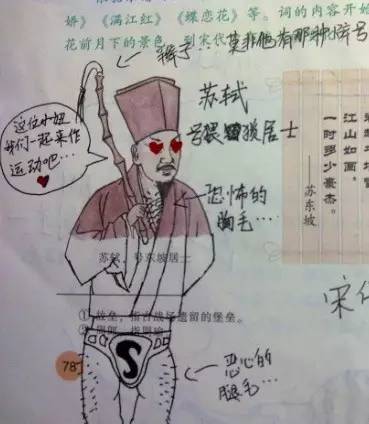 娇》《满江红》《蝶恋花》等。词的内容开始
花前月下的景色，到宋代
莫非他有那种符号
苏轼
号猥琐居士
这位小妞
我们一起来作
运动吧…
恐怖的
胸毛…
江山如画。
一时多少豪杰。
——苏东坡
苏轼，号东坡居士
①故垒，指古战场遗留的堡垒。
宋
78
S
恶心的
腿毛…